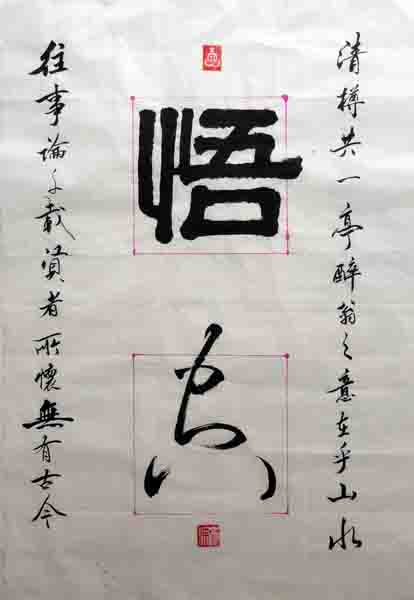 清樽共一亭醉翁之意在乎山水
悟
真
往事論千載賢者所懷無有古今